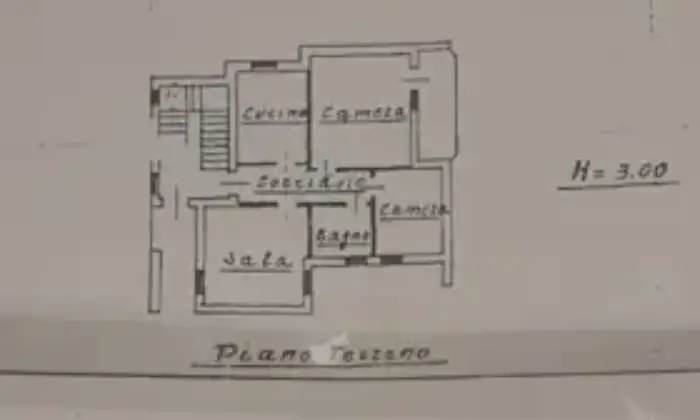 Cucina
Camera
H = 3.00
Corridoio
Camera
Bagno
Sala
Piano Terreno